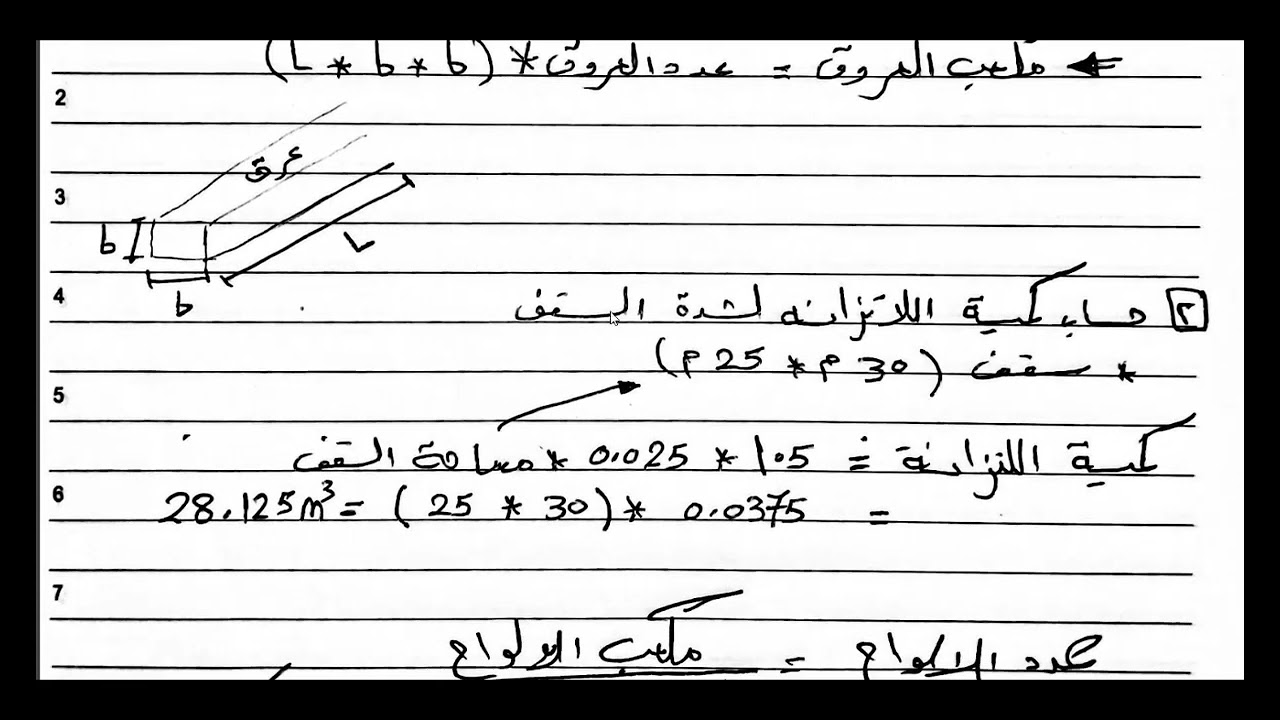 ← مكعب العروق = عدد العروق * (L * b * b)
2
عرق
3
b
L
4
b
2 حساب كمية اللاتزانه لشدة السقف
* سقف (30 م * 25 م)
5
كمية اللتزانة = 1.05 * 0.025 * مساحة السقف
6
= 0.0375 * (30 * 25) = 28.125 m³
7
عدد الالواح = مكعب الالواح